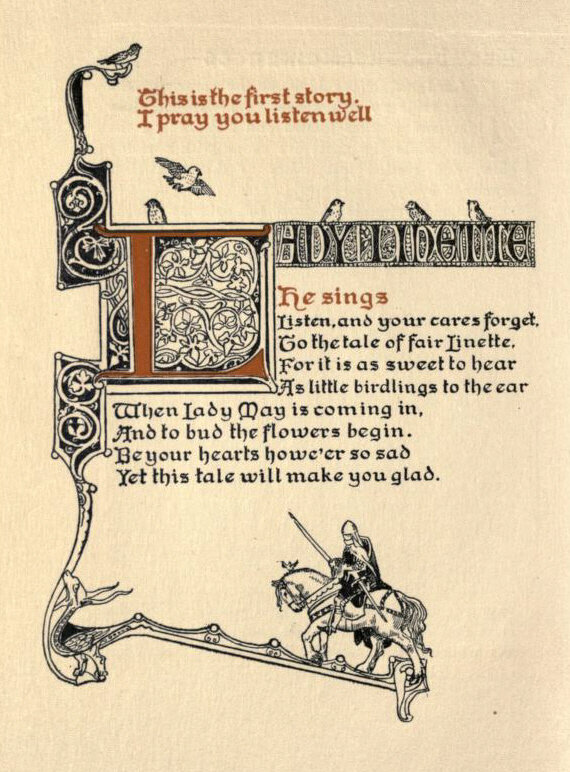 This is the first story.
I pray you listen well
LADY LINETTE
He sings
Listen, and your cares forget,
To the tale of fair Linette,
For it is as sweet to hear
As little birdlings to the ear
When Lady May is coming in,
And to bud the flowers begin.
Be your hearts howe'er so sad
Yet this tale will make you glad.